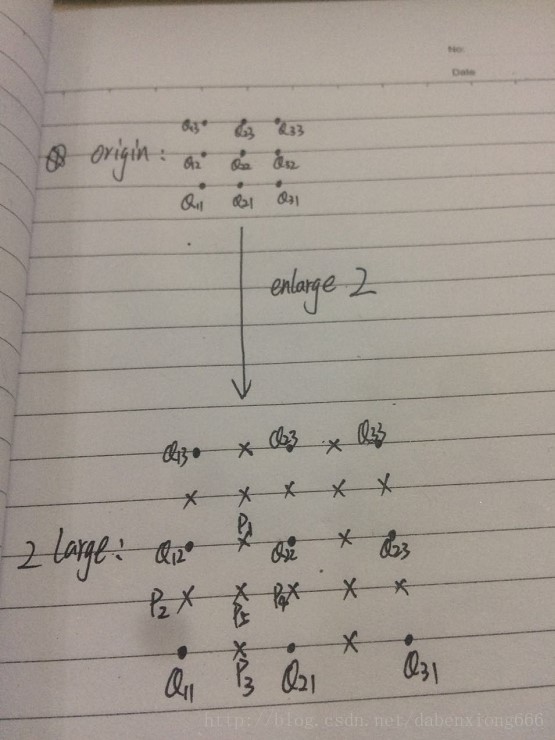 No:
Date
Q13 Q23 Q33
origin: Q12 Q22 Q32
Q11 Q21 Q31
enlarge 2
Q13 × Q23 × Q33
× × × × ×
P1
2 large: Q12 × Q22 × Q23
P2 × × P4 × × ×
P5
× ×
Q11 P3 Q21 Q31
http://blog.csdn.net/dabenxiong666